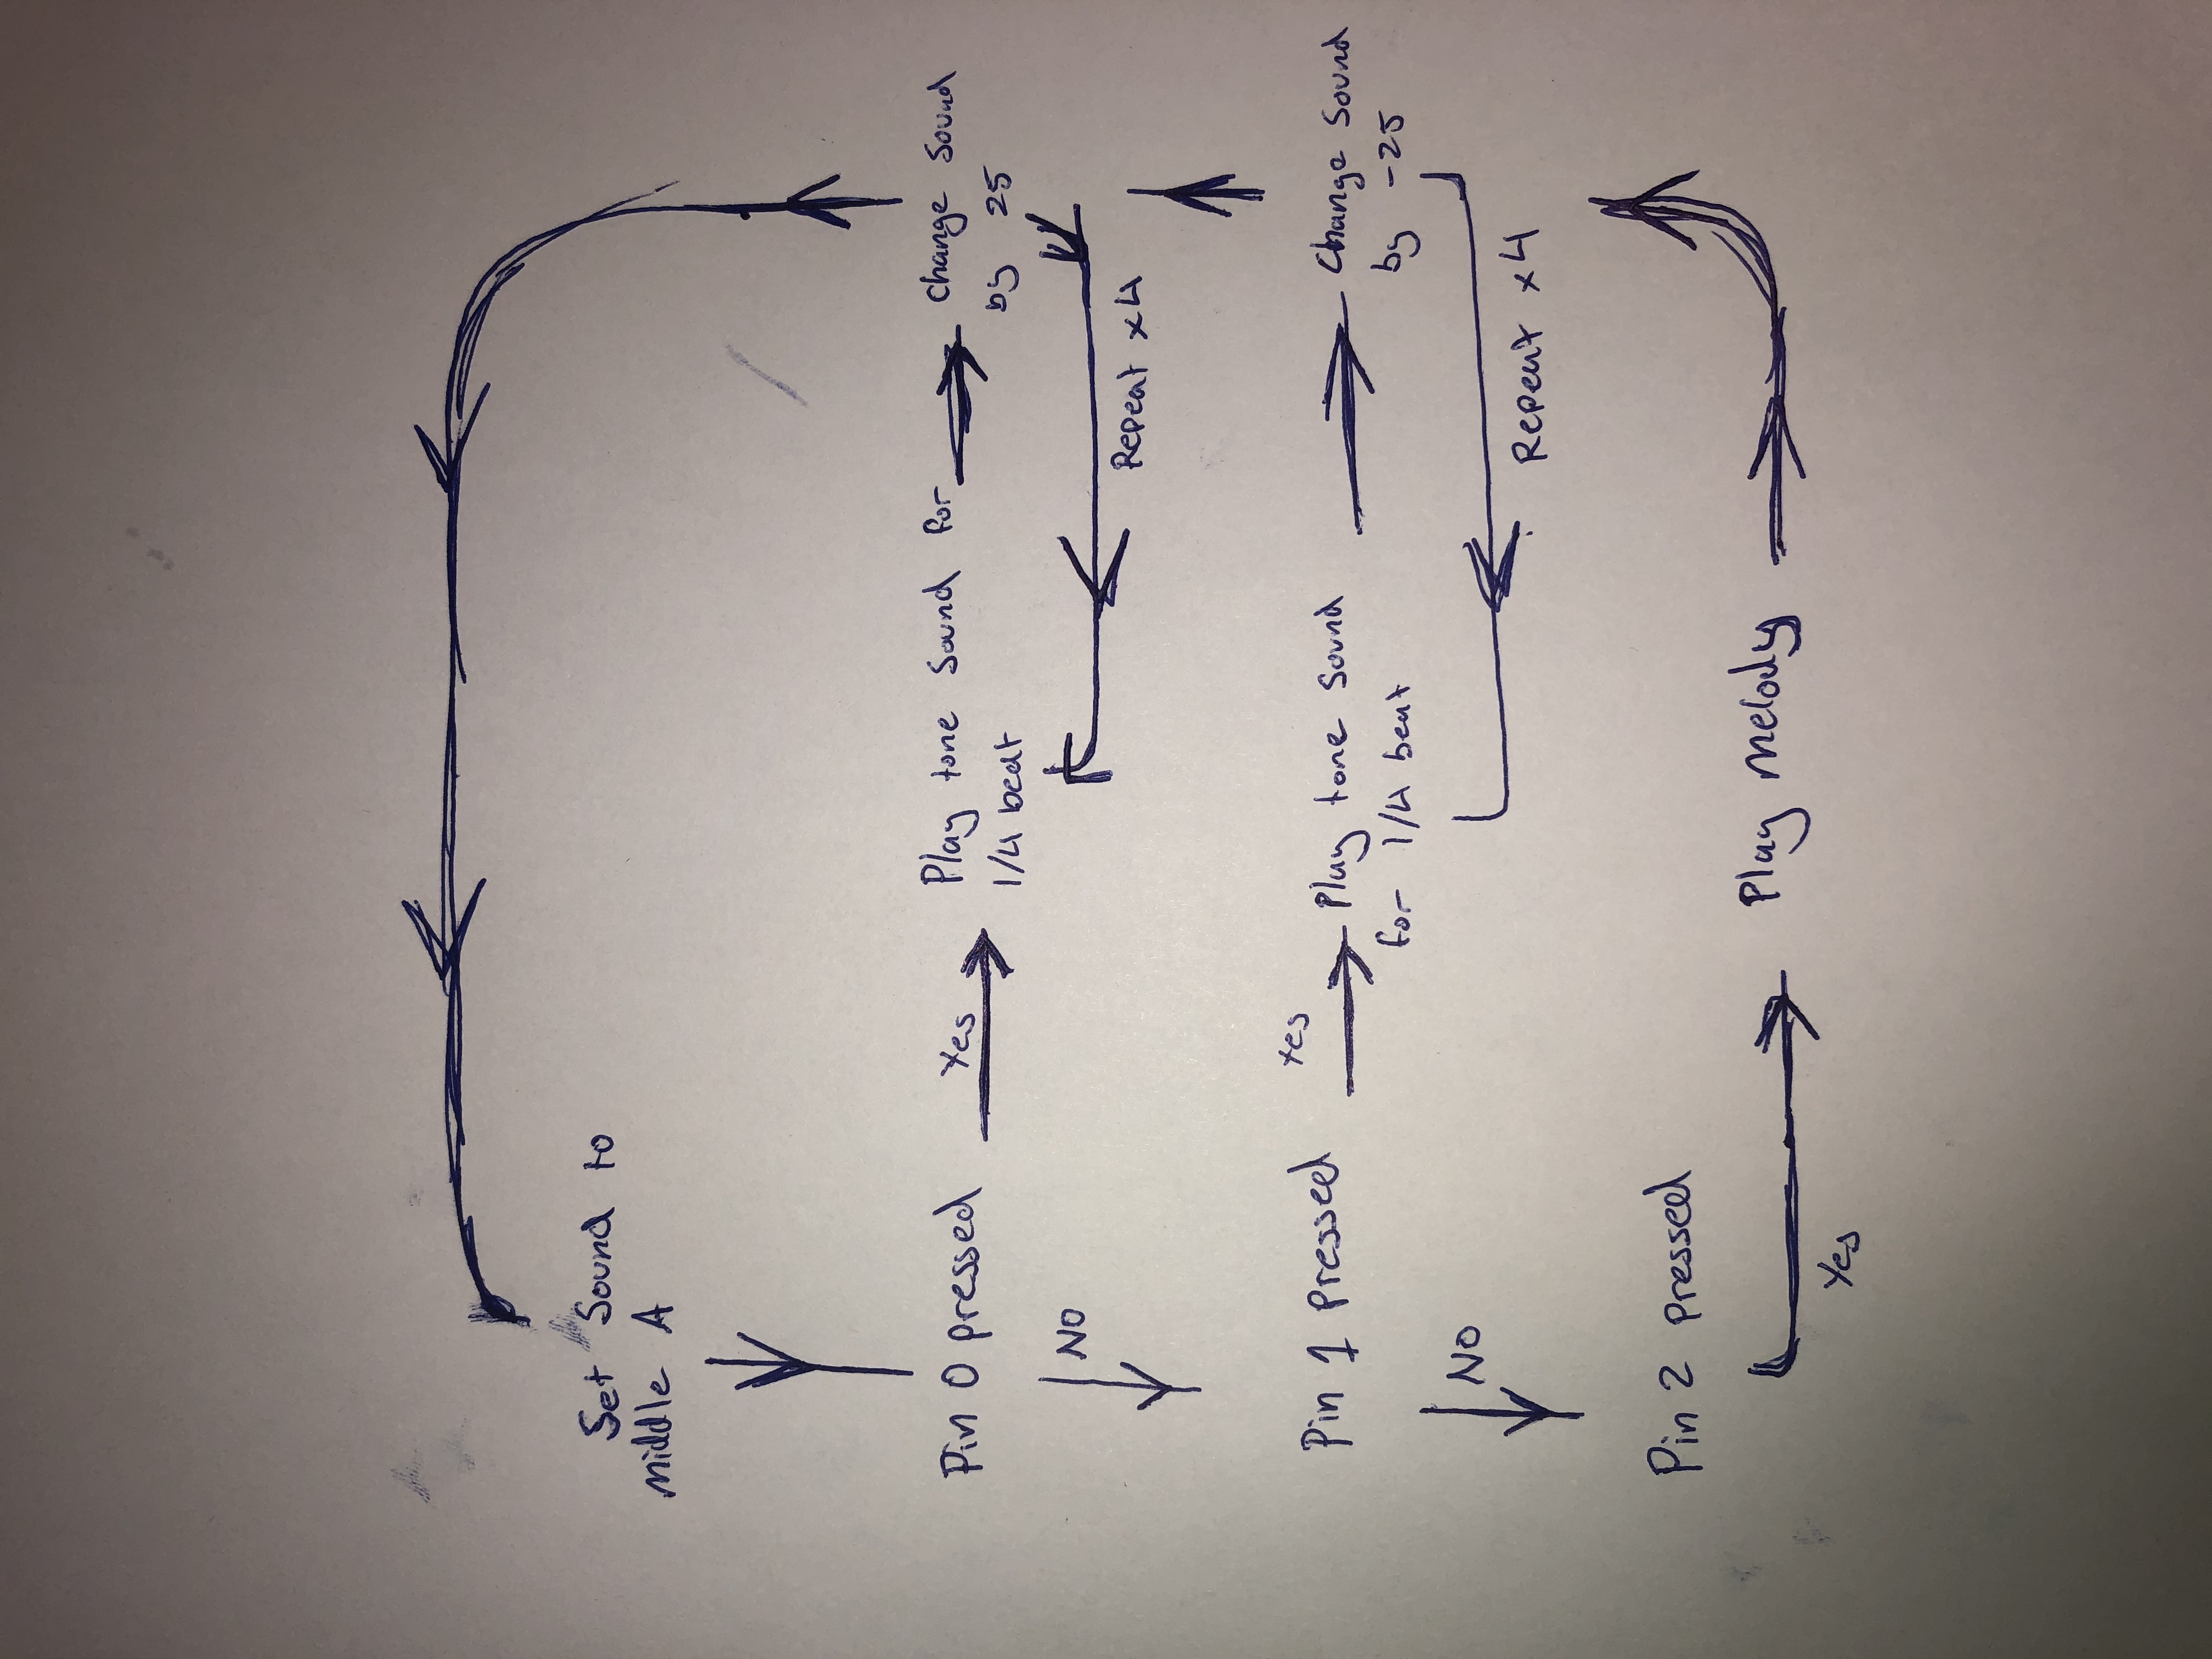 Set Sound to
middle A
Pin 0 pressed
Yes
Play tone Sound for
1/4 beat
change Sound
by 25
NO
Repeat x4
Pin 1 pressed
Yes
Play tone Sound
for 1/4 beat
Change Sound
by -25
NO
Repeat x4
Pin 2 pressed
Yes
Play Melody